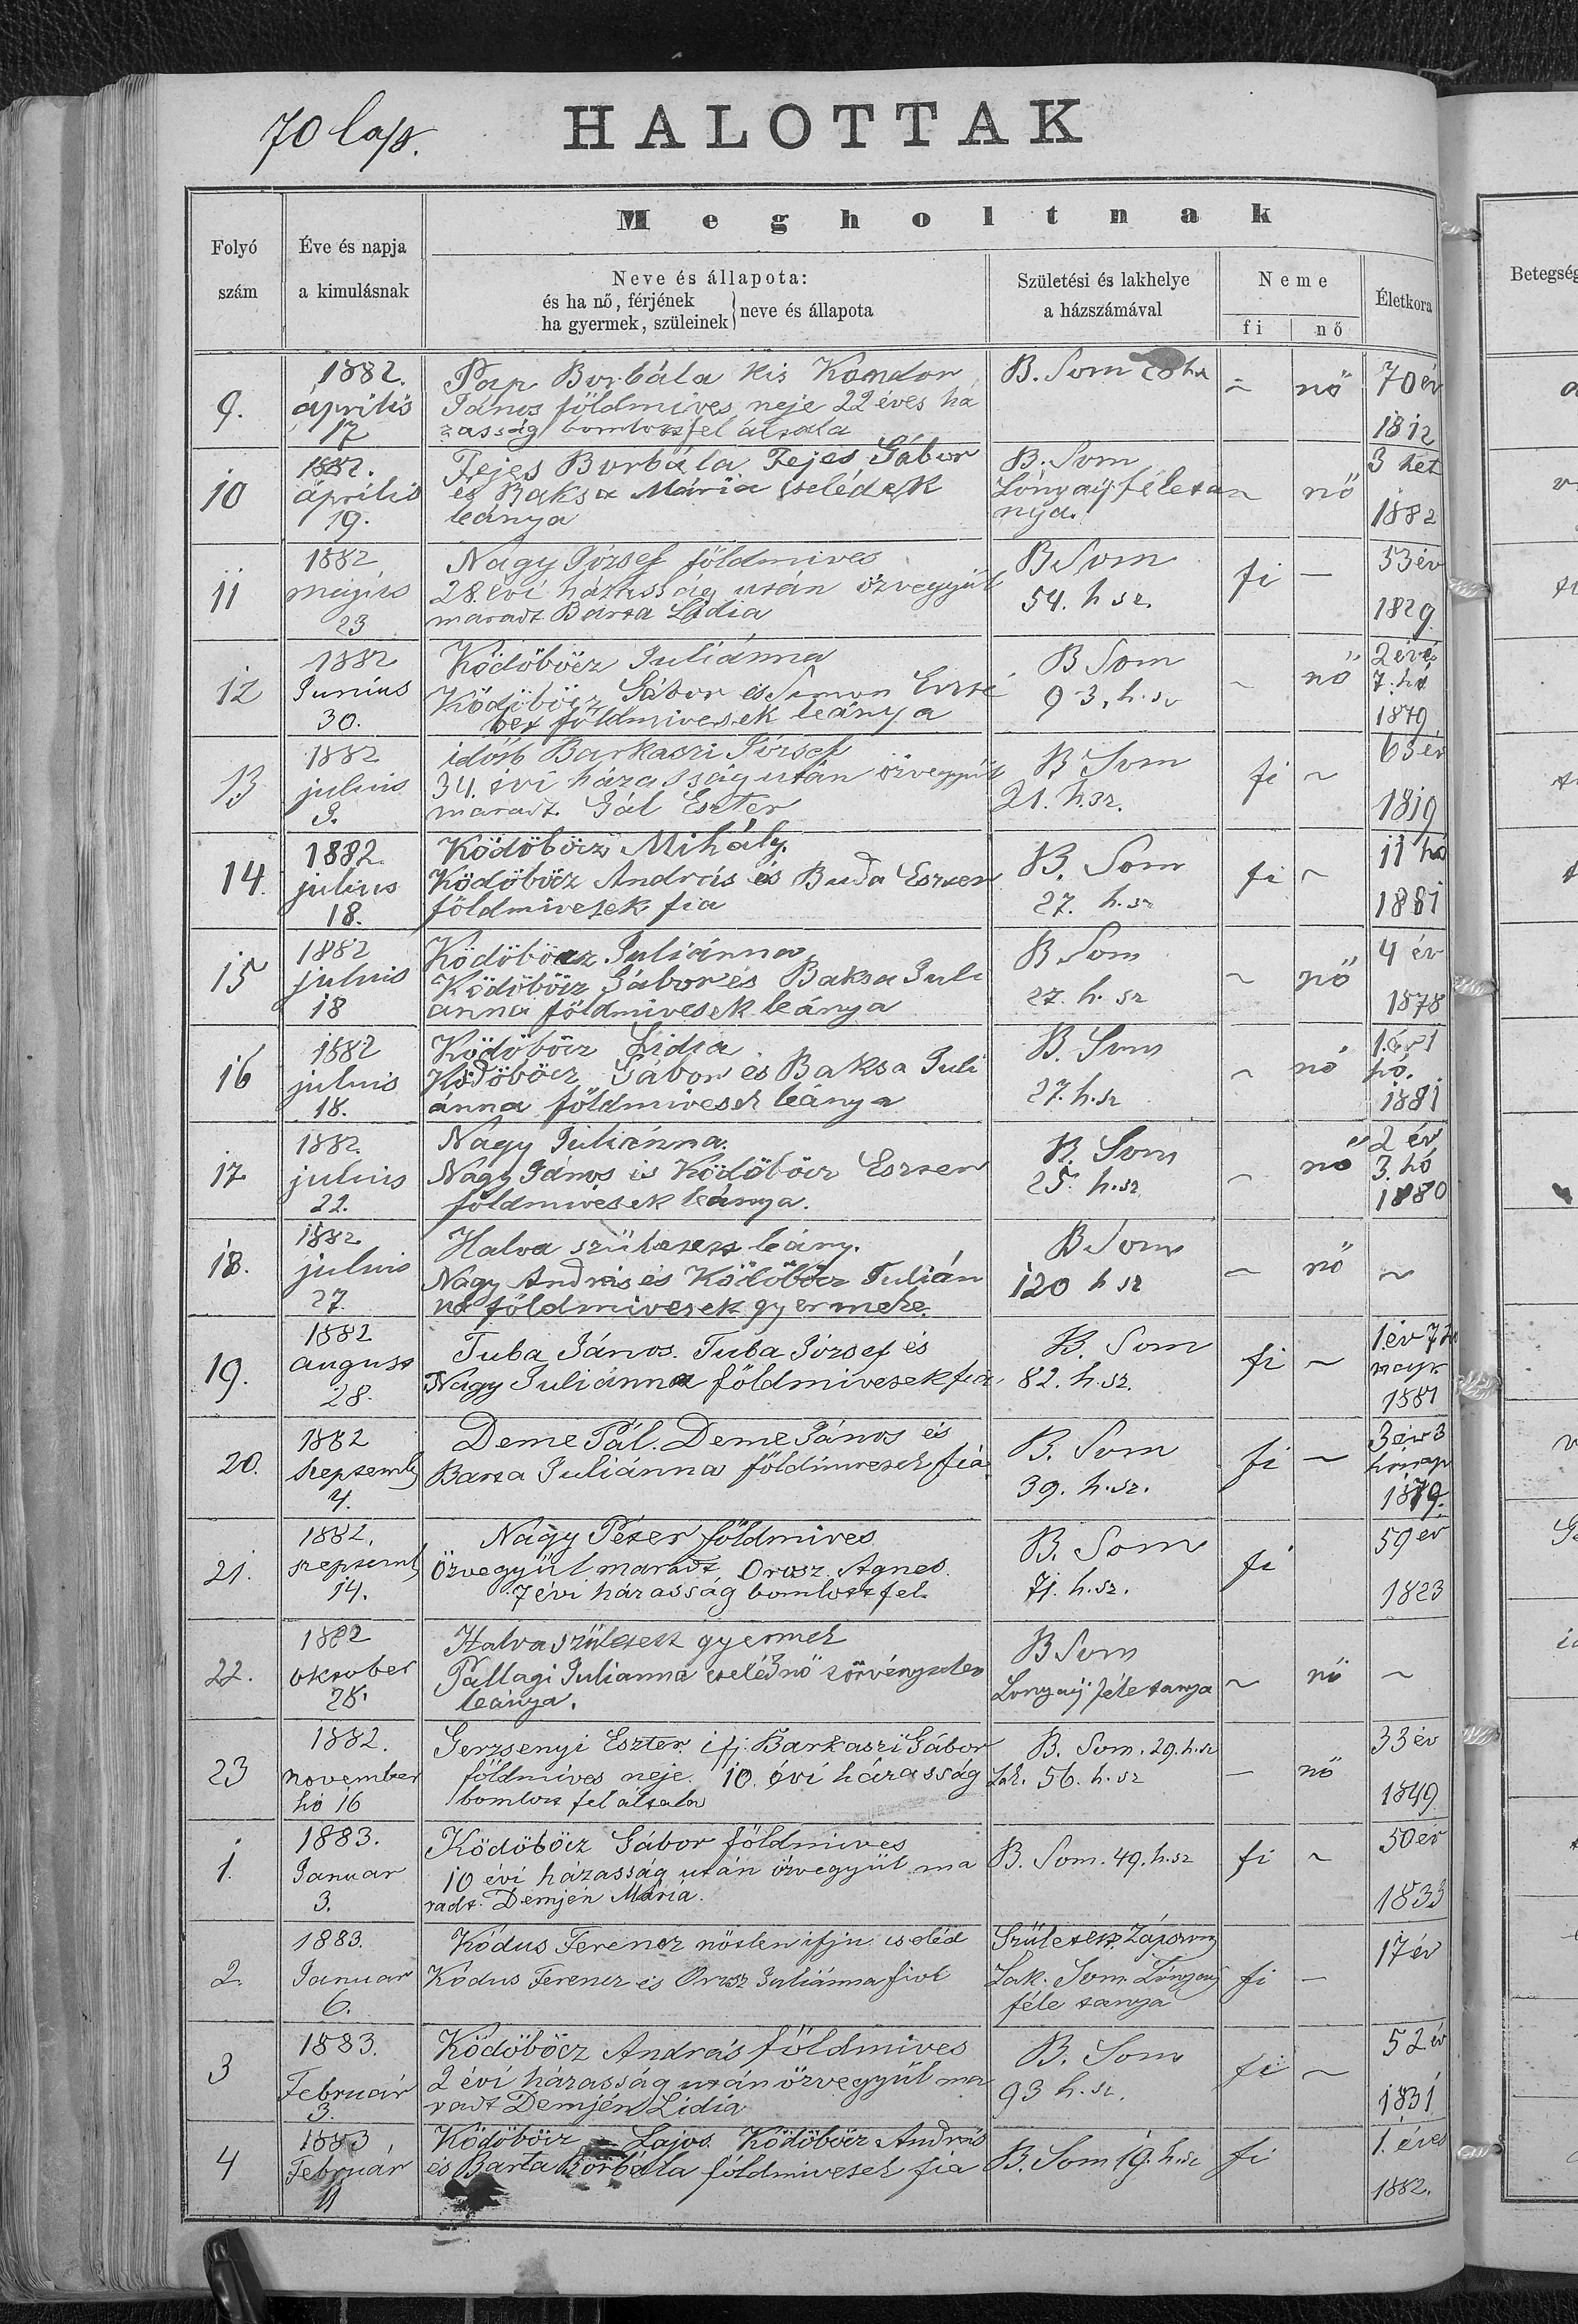 70 lap.
HALOTTAK
Folyó szám
Éve és napja a kimulásnak
Megholtnak
Neve és állapota:
és ha nő, férjének
ha gyermek, szüleinek } neve és állapota
Születési és lakhelye
a házszámával
Neme
fi
nő
Életkora
Betegség
9.
1882.
április
17
Pap Borbála Kis Kondor
János földmives neje 22 éves há
zasság bomlott fel általa
B. Som
~
nő
70 év
1812
10
1882.
április
19.
Fejes Borbála Fejes Gábor
és Baksa Mária cselédek
leánya
B. Som
Lónyay féle ta
nya.
~
nő
3 hét
1882
11
1882
május
23
Nagy József földmives
28. évi házasság után özvegyül
maradt Barta Lidia
B Som
54. h sz.
fi
—
53 év
1829
12
1882
Junius
30.
Ködöböcz Juliánna
Ködöböcz Gábor és Simon Erzsé
bet földmivesek leánya
B Som
93. h. sz
~
nő
2 évé
7. hó
1879
13
1882
julius
9.
idősb Barkaszi József
34. évi házasság után özvegyül
maradt. Gál Eszter
B Som
21. h.sz.
fi
~
63 év
1819
14.
1882.
julius
18.
Ködöböcz Mihály.
Ködöböcz András és Buda Eszter
földmivesek fia
B. Som
27. h. sz
fi
~
11 hó
1881
15
1882
julius
18
Ködöböcz Juliánna
Ködöböcz Gábor és Baksa Juli
anna földmivesek leánya
B Som
27. h. sz
~
nő
4 év
1878
16
1882
julius
18.
Ködöböcz Lidia
Ködöböcz Gábor és Baksa Juli
ánna földmivesek leánya
B. Som
27. h.sz
~
nő
1. év 1
hó.
1881
17
1882.
julius
22.
Nagy Juliánna.
Nagy János és Ködöböcz Eszter
földmivesek leánya.
B. Som
25. h.sz
~
nő
2 év
3. hó
1880
18.
1882
julius
27.
Halva született leány.
Nagy András és Ködöböcz Julián
na földmivesek gyermeke.
B Som
120 h sz
~
nő
~
19.
1882
august
28.
Tuba János. Tuba József és
Nagy Juliánna földmivesek fia.
B. Som
82. h.sz.
fi
~
1. év 7
1881
20.
1882
Szeptemb
4.
Deme Pál. Deme János és
Barta Juliánna földmivesek fia
B. Som
39. h.sz.
fi
~
3 év 3
hónap
1879.
21.
1882.
szeptemb
14.
Nagy Péter földmives
özvegyül maradt Orosz Agnes.
7 évi házasság bomlott fel.
B. Som
71. h.sz.
fi
59 év
1823
22.
1882
oktober
28.
Halva született gyermek
Pallagi Julianna cselédnő törvénytelen
leánya.
B Som
Lonyay féle tanya
~
nő
~
23
1882.
november
hó 16
Gerzsenyi Eszter. ifj. Barkaszi Gábor
földmives neje. 10. évi házasság
bomlott fel általa
B. Som. 29. h.sz
Lak. 56. h. sz
—
nő
33 év
1849
1.
1883.
Januar
3.
Ködöböcz Gábor földmives
10 évi házasság után özvegyül ma
radt. Demjén Mária.
B. Som. 49. h.sz
fi
~
50 év
1833
2.
1883.
Januar
6.
Kódus Ferencz nőtlen ifju cseléd
Kódus Ferencz és Orosz Juliánna fiok
Született. Zápszony
Lak. Som. Lónyay
féle tanya
fi
—
17 év
3
1883.
Február
3.
Ködöböcz András földmives
2 évi házasság után özvegyül ma
radt Demjén Lidia
B. Som
93 h. sz.
fi
~
52 év
1831
4
1883
Február
11
Ködöböcz Lajos. Ködöböcz András
és Barta Borbála földmivesek fia
B. Som 19. h.sz
fi
1. éves
1882.